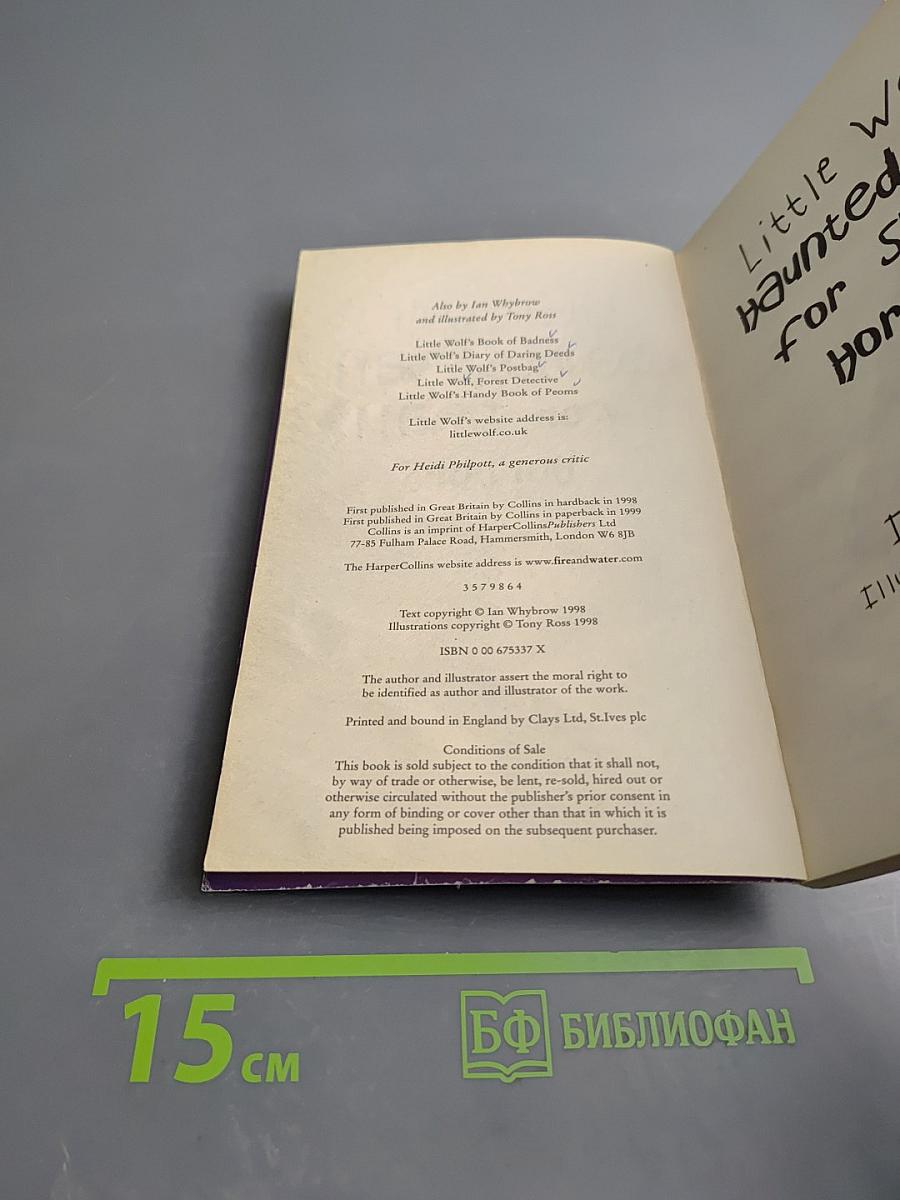 Also by Ian Whybrow
and illustrated by Tony Ross
Little Wolf's Book of Badness
Little Wolf's Diary of Daring Deeds
Little Wolf's Postbag
Little Wolf, Forest Detective
Little Wolf's Handy Book of Peoms
Little Wolf's website address is:
littlewolf.co.uk
For Heidi Philpott, a generous critic
First published in Great Britain by Collins in hardback in 1998
First published in Great Britain by Collins in paperback in 1999
Collins is an imprint of HarperCollinsPublishers Ltd
77-85 Fulham Palace Road, Hammersmith, London W6 8JB
The HarperCollins website address is www.fireandwater.com
3 5 7 9 8 6 4
Text copyright © Ian Whybrow 1998
Illustrations copyright © Tony Ross 1998
ISBN 0 00 675337 X
The author and illustrator assert the moral right to
be identified as author and illustrator of the work.
Printed and bound in England by Clays Ltd, St.Ives plc
Conditions of Sale
This book is sold subject to the condition that it shall not,
by way of trade or otherwise, be lent, re-sold, hired out or
otherwise circulated without the publisher's prior consent in
any form of binding or cover other than that in which it is
published being imposed on the subsequent purchaser.
Little
Haunted
for
15 см
БФ БИБЛИОФАН